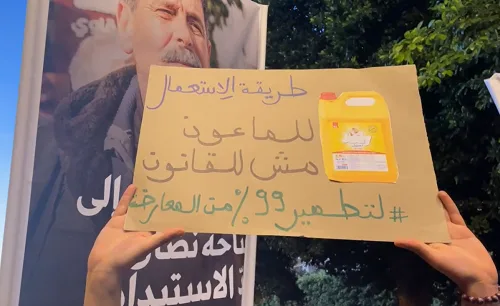 طريقة الاستعمال
للماعون
مش للقانون
# لتطهير 99% من المعارضة
إلى
الاستبداد